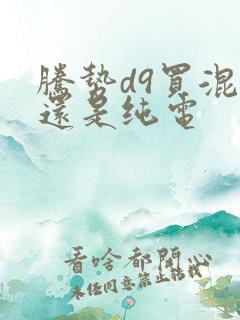 騰势d9買混
還是纯電
看啥都閙心
未经同意禁止转载